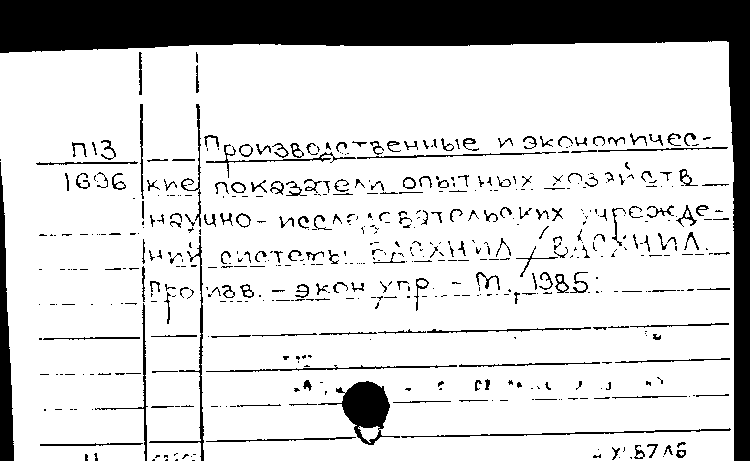 П13 Производственные и экономичес-
1696 кие показатели опытных хозяйств
научно-исследовательских учрежде-
ний системы ВАСХНИЛ / ВАСХНИЛ.
Произв. - экон упр. - М., 1985.